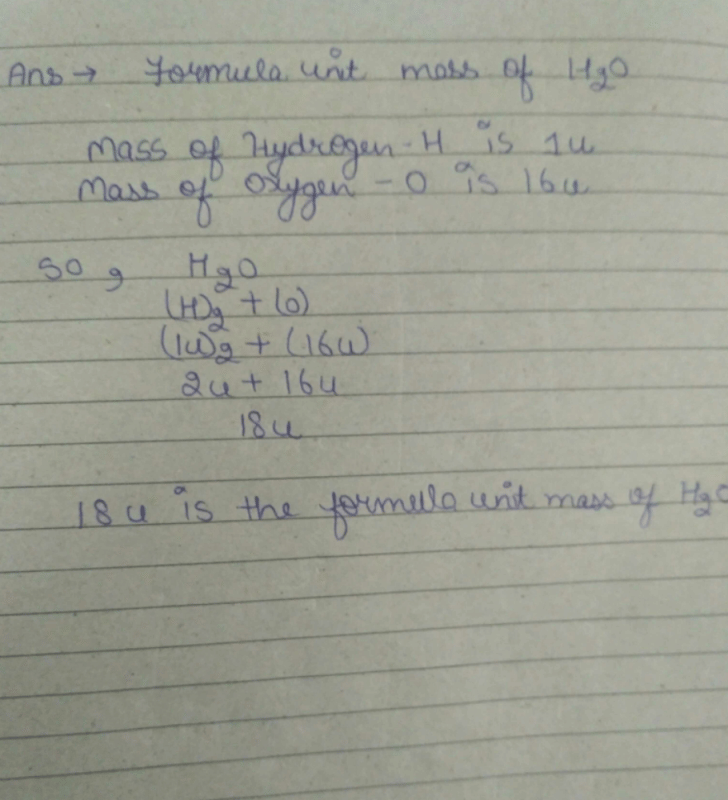 Ans → Formula unit mass of H₂O
Mass of Hydrogen - H is 1u
Mass of Oxygen - O is 16u
SO, H₂O
(H)₂ + (O)
(1u)₂ + (16u)
2u + 16u
18u
18 u is the formula unit mass of H₂O